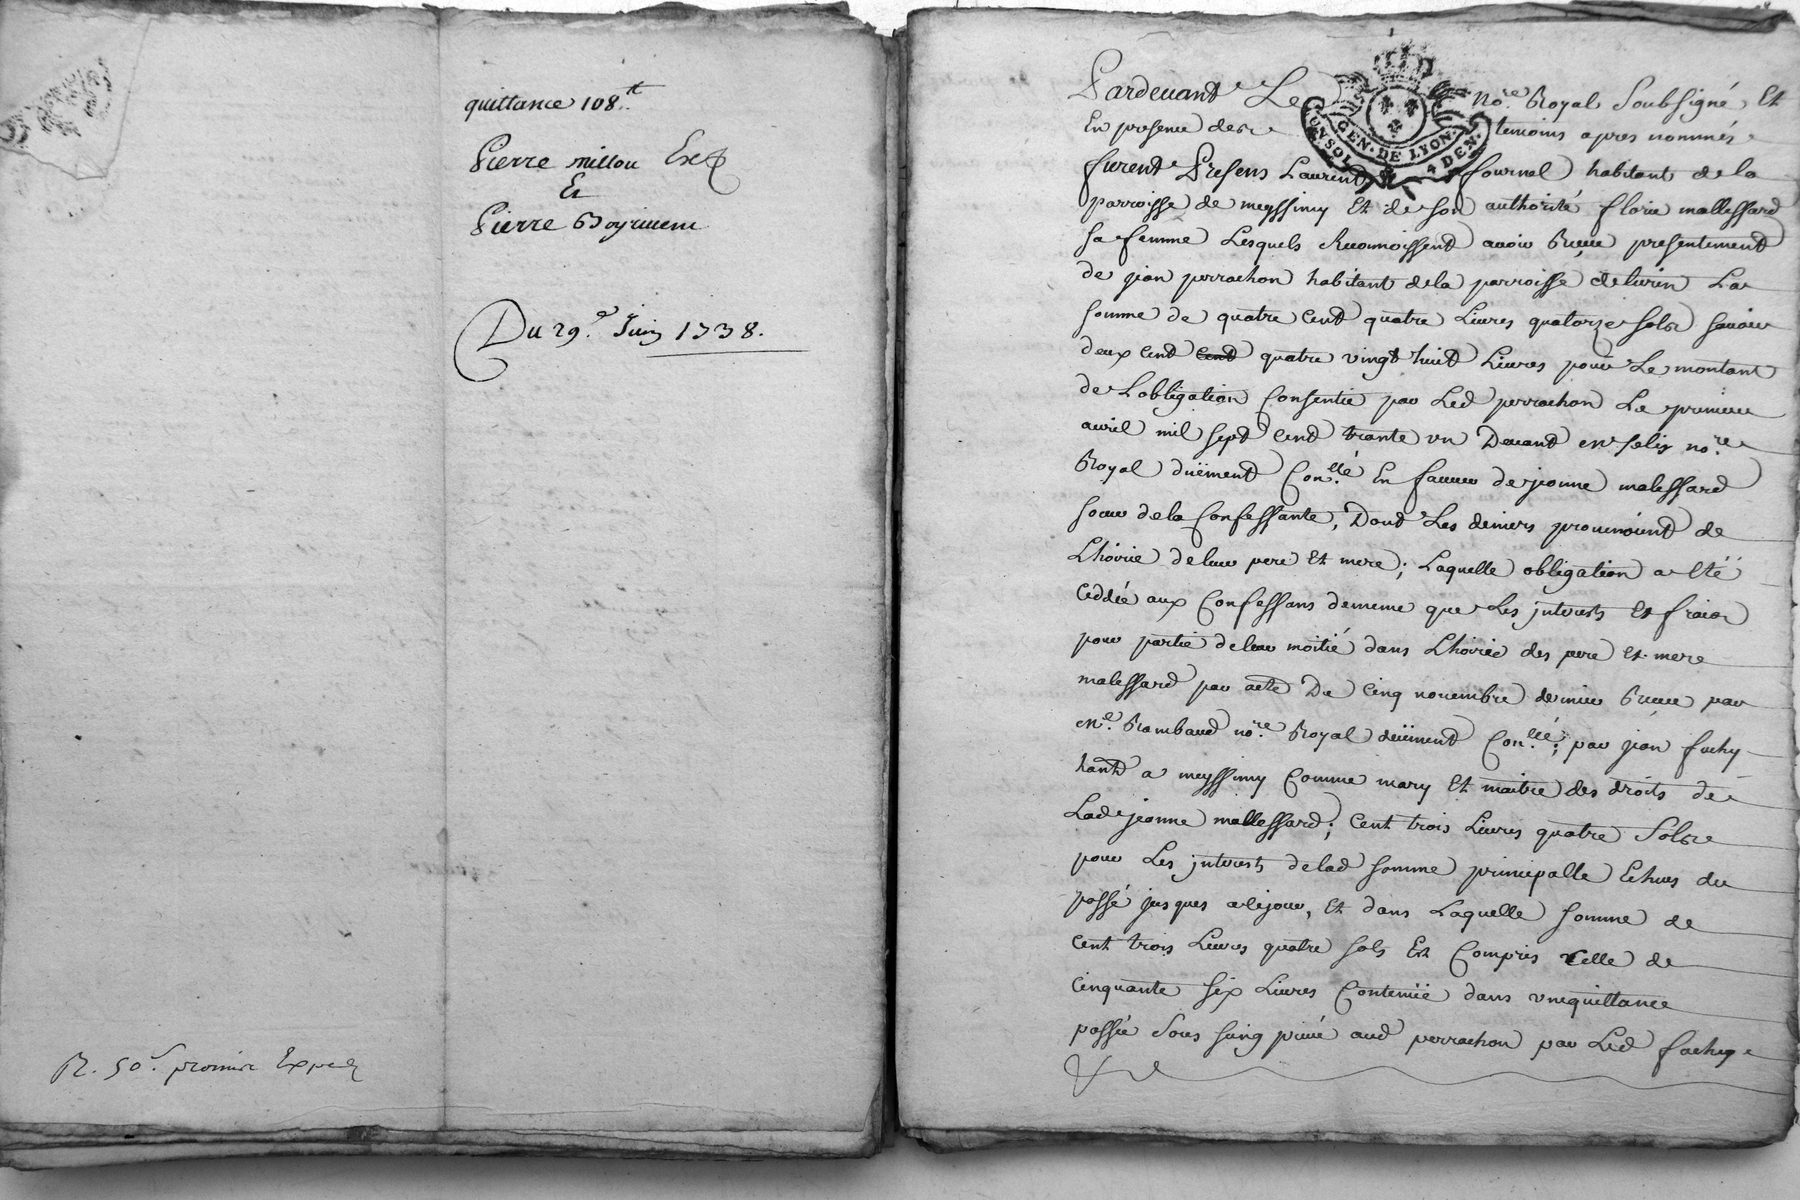 quittance 108 tt
Pierre millou Exp
Et
Pierre
Du 29e Juin 1738.
R. 50s. promis Exped
GEN. DE LYON.
UN SOL 4 DEN.
Pardevant Le Nore. Royal Soubsigné, Et
En presence des temoins apres nommés
furent Presens Laurent fournel habitant de la
parroisse de meyssimy Et de son authorité florie mallessard
sa femme Lesquels Reconnoissent avoir Reçeu presentement
de jean perrachon habitant dela parroisse de La
somme de quatre Cent quatre Livres quatorze sols savoir
deux Cent Cent quatre vingt huit Livres pour Le montant
de Lobligation Consentie par Led perrachon Le premier
avril mil sept Cent trante un Devant Me felix nore.
Royal düement Conllé. En faveur de jeanne malessard
soeur dela Confessante, Dont Les deniers provenoient de
Lhoirie deleur pere Et mere; Laquelle obligation a Eté
Ceddée aux Confessans dememe que Les jnterests Et frais
pour partie deleur moitié dans Lhoirie des pere Et mere
malessard par acte De Cinq novembre dernier Reçeu par
Me. Rambaud nore. Royal düement Conllé; par jean fachy
hant a meyssimy Comme mary Et maitre des droits de
Lad jeanne mallessard; Cent trois Livres quatre Sols
pour Les jnterests delad somme principalle Echus du
passé jusques acejour, Et dans Laquelle somme de
Cent trois Livres quatre sols Est Compris Celle de
Cinquante six Livres Contenüe dans vnequittance
passée Sous seing privé aud perrachon par Led fachy